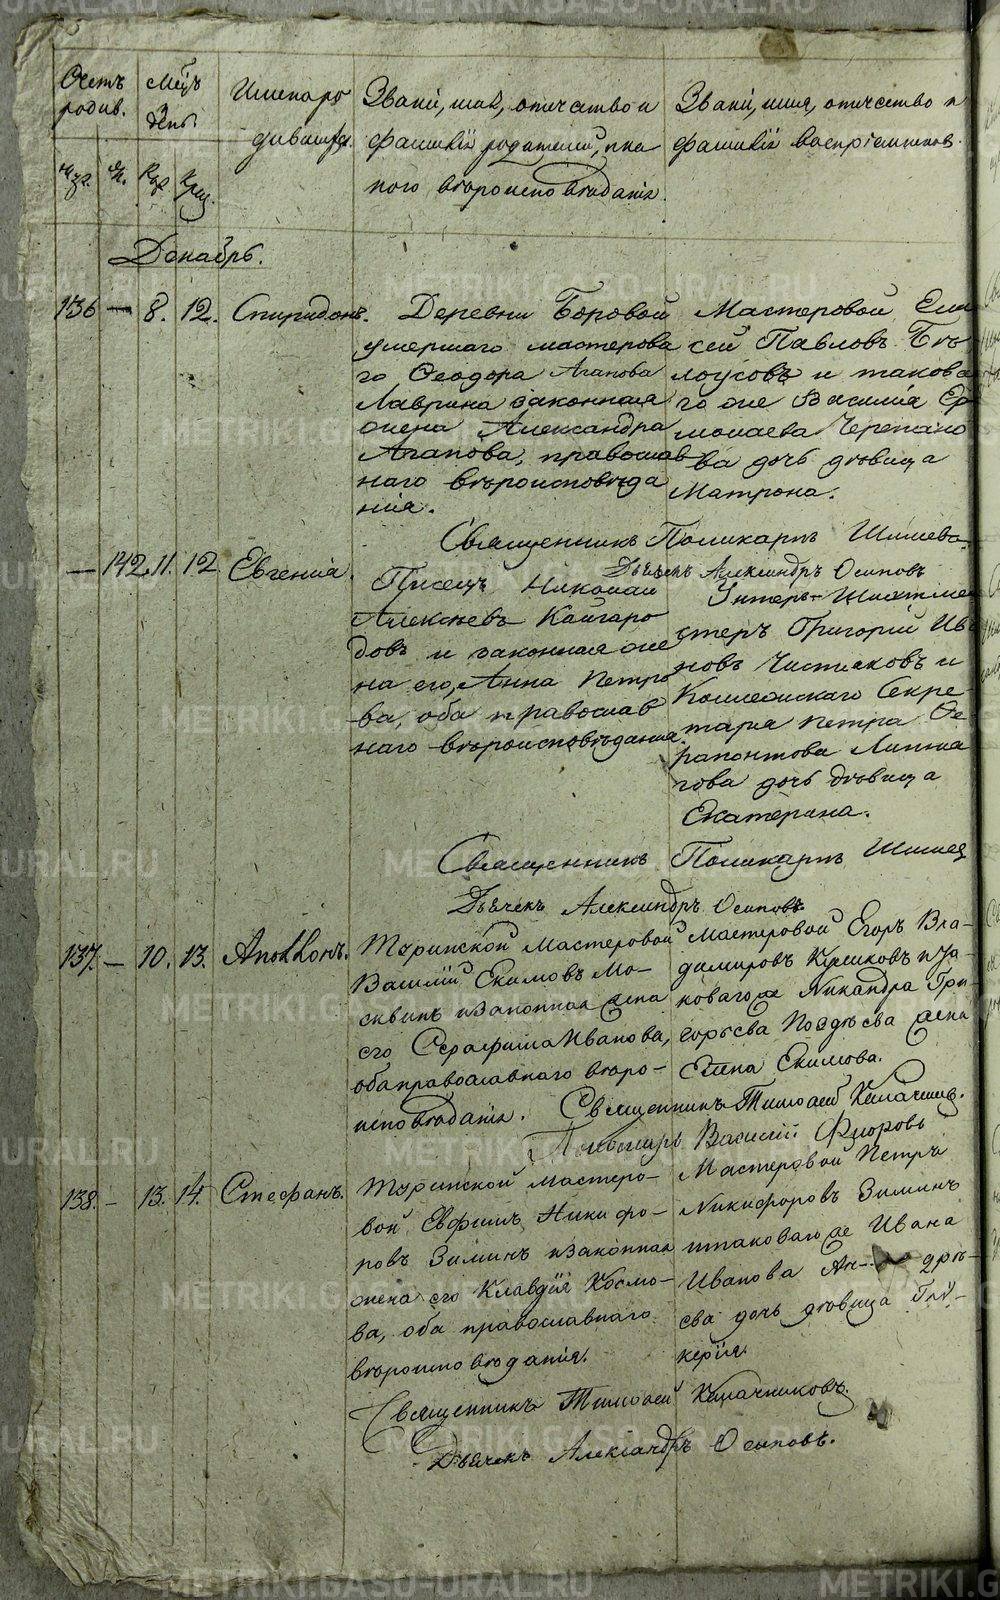 Счетъ родив.
Мѣц. День.
Имена родившихся.
Званіе, имя, отчество и
фамилія родителей, и ка
кого вѣроисповѣданія.
Званіе, имя, отчество и
фамилія воспріемниковъ.
Декабрь.
136 — 8. 12. Спиридонъ.
Деревни Боровой
умершаго мастерова
го Ѳеодора Агапова
Лаврина законная
жена Александра
Агапова, православ
наго вѣроисповѣда
нія.
Мастеровой Ели
сей Павловъ Бѣ
лоусовъ и таково
го же Василія Ер
молаева Черепано
ва дочь дѣвица
Матрона.
Священникъ Поликарпъ Шишева
Дьячекъ Александръ Осиповъ
— 142. 11. 12. Евгенія.
Писецъ Николай
Алексѣевъ Кайгаро
довъ и законная же
на его, Анна Петро
ва, оба православ
наго вѣроисповѣданія.
Унтеръ-Шихтмей
стеръ Григорій Ива
новъ Чистяковъ и
Коллежскаго Секре-
таря Петра Ѳе-
рапонтова
дочь дѣвица
Екатерина.
Священникъ Поликарпъ Шишев
Дьячекъ Александръ Осиповъ.
137. — 10. 13.
Туринской Мастеровой
Василій Екимовъ Мо-
сквинъ и законная жена
его Серафима Иванова,
оба православнаго вѣро-
исповѣданія.
Мастеровой Егоръ Вла-
димировъ и та-
коваго же Никандра Гри-
горьева Поздѣева жена
Елена Екимова.
Священникъ Тимоѳей Калачник.
Пономарь Василій Флоровъ
138. — 13. 14. Стефанъ.
Туринской мастеро-
вой Евфимъ Никифо-
ровъ Зиминъ и законная
жена его Клавдія Козмо-
ва, оба православнаго
вѣроисповѣданія.
Мастеровой Петръ
Никифоровъ Зиминъ
и таковаго же Ивана
Иванова Ан- дрѣ-
ева дочь дѣвица Гли-
керія.
Священникъ Тимоѳей Калачниковъ.
Дьячекъ Александръ Осиповъ.
METRIKI.GASO-URAL.RU